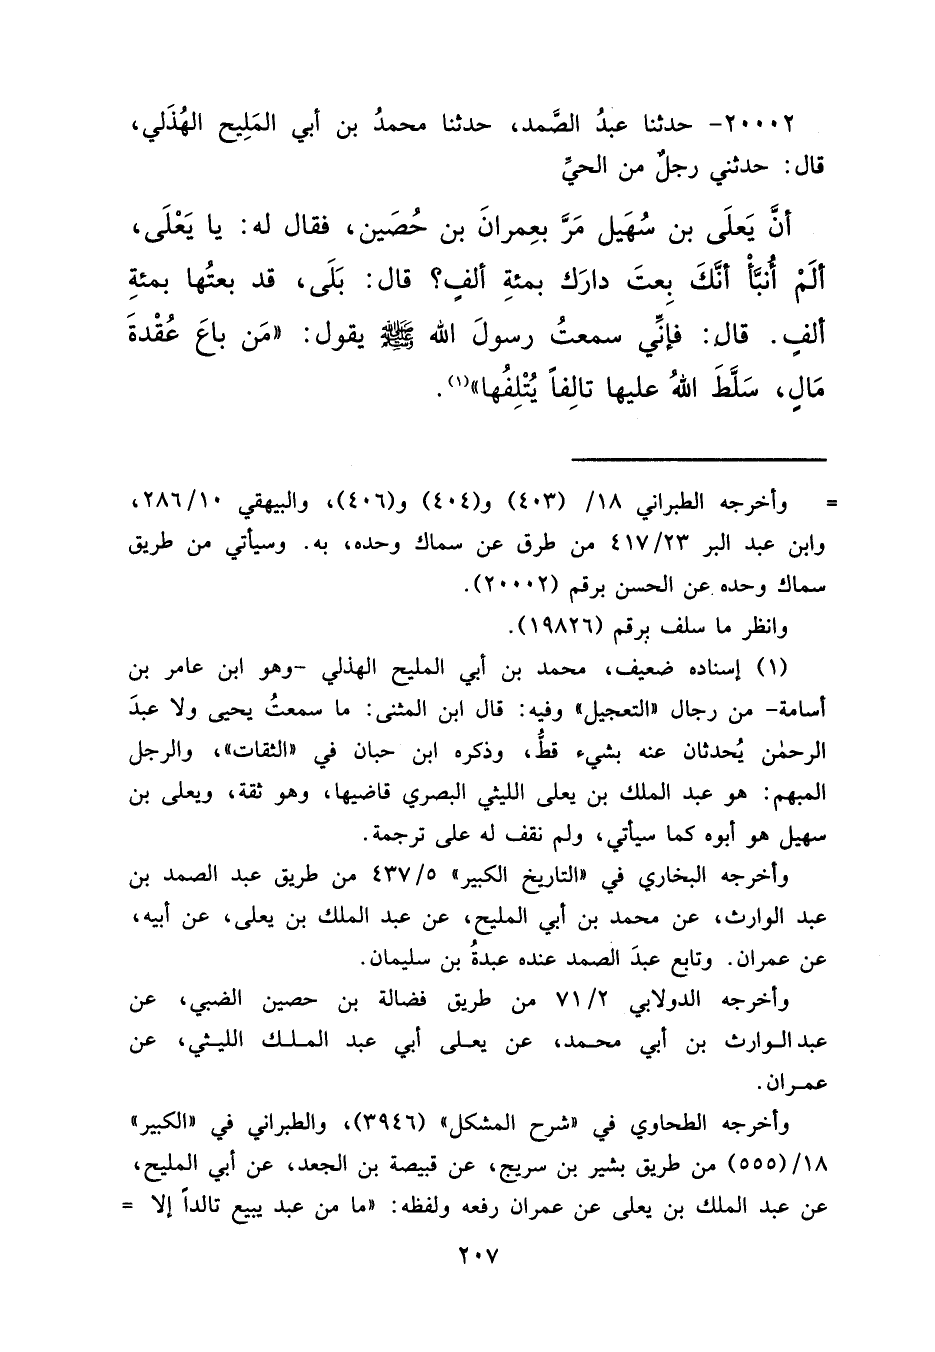 ٢٠٠٠٢- حدثنا عبدُ الصَّمد، حدثنا محمدُ بن أبي المَلِيح الهُذَلي،
قال: حدثني رجلٌ من الحيِّ
أنَّ يَعلَى بن سُهَيل مَرَّ بعِمرانَ بن حُصَين، فقال له: يا يَعْلَى،
ألَمْ أُنبَّأْ أنَّكَ بِعتَ دارَك بمئةِ ألفٍ؟ قال: بَلَى، قد بعتُها بمئةِ
ألفٍ. قال: فإنِّي سمعتُ رسولَ الله ﷺ يقول: «مَن باعَ عُقْدةَ
مَالٍ، سَلَّطَ اللهُ عليها تالِفاً يُتْلِفُها»(١).
= وأخرجه الطبراني ١٨/ (٤٠٣) و(٤٠٤) و(٤٠٦)، والبيهقي ٢٨٦/١٠،
وابن عبد البر ٤١٧/٢٣ من طرق عن سماك وحده، به. وسيأتي من طريق
سماك وحده عن الحسن برقم (٢٠٠٠٢).
وانظر ما سلف برقم (١٩٨٢٦).
(١) إسناده ضعيف، محمد بن أبي المليح الهذلي -وهو ابن عامر بن
أسامة- من رجال «التعجيل» وفيه: قال ابن المثنى: ما سمعتُ يحيى ولا عبدَ
الرحمٰن يُحدثان عنه بشيء قطُّ، وذكره ابن حبان في «الثقات»، والرجل
المبهم: هو عبد الملك بن يعلى الليثي البصري قاضيها، وهو ثقة، ويعلى بن
سهيل هو أبوه كما سيأتي، ولم نقف له على ترجمة.
وأخرجه البخاري في «التاريخ الكبير» ٤٣٧/٥ من طريق عبد الصمد بن
عبد الوارث، عن محمد بن أبي المليح، عن عبد الملك بن يعلى، عن أبيه،
عن عمران. وتابع عبدَ الصمد عنده عبدةُ بن سليمان.
وأخرجه الدولابي ٧١/٢ من طريق فضالة بن حصين الضبي، عن
عبد الوارث بن أبي محمد، عن يعلى أبي عبد الملك الليثي، عن
عمران.
وأخرجه الطحاوي في «شرح المشكل» (٣٩٤٦)، والطبراني في «الكبير»
١٨/(٥٥٥) من طريق بشير بن سريج، عن قبيصة بن الجعد، عن أبي المليح،
عن عبد الملك بن يعلى عن عمران رفعه ولفظه: «ما من عبد يبيع تالداً إلا =
٢٠٧